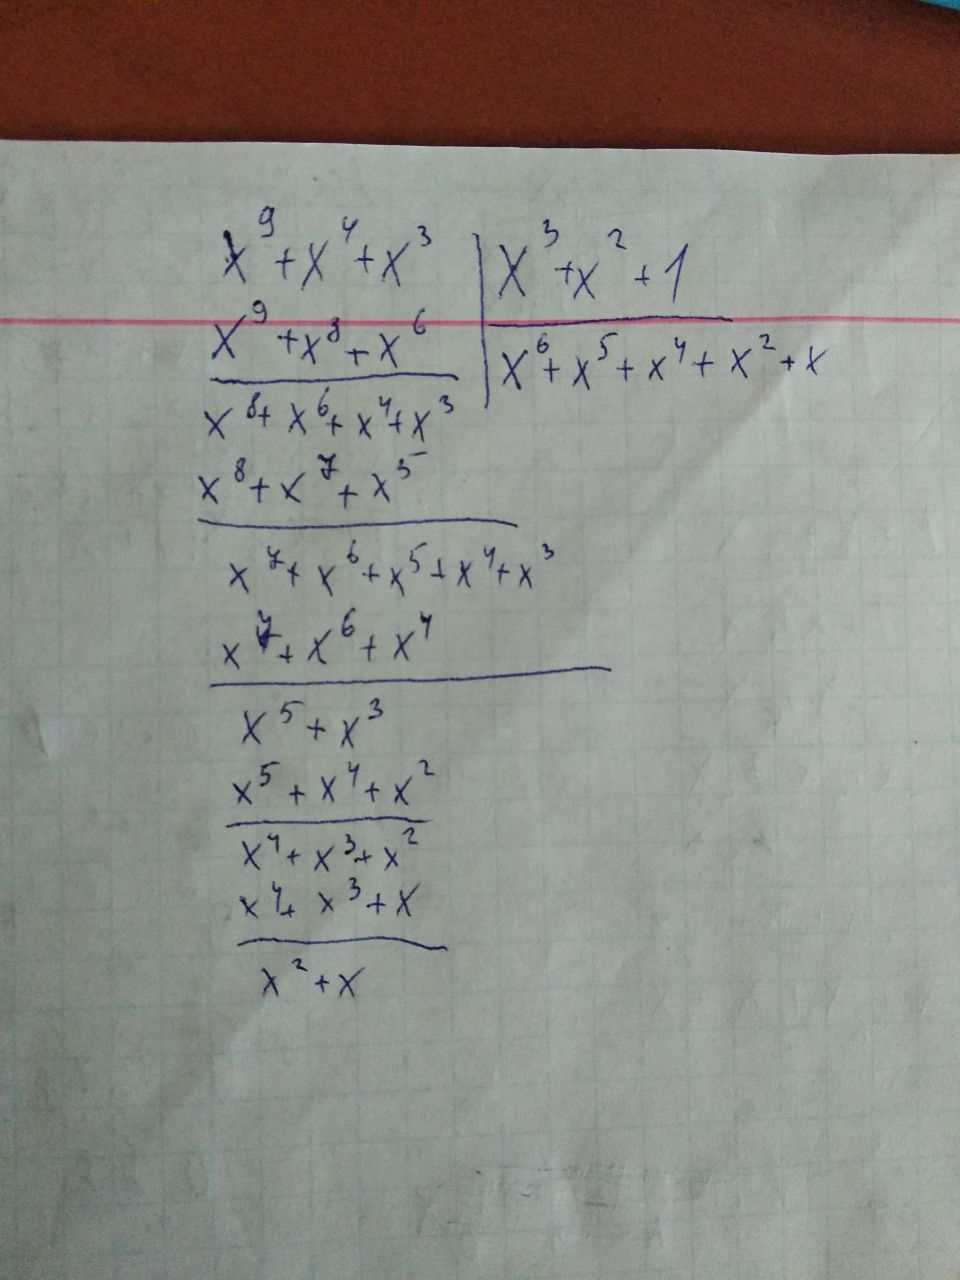 x⁹+x⁴+x³ | x³+x²+1
x⁹+x⁸+x⁶ | x⁶+x⁵+x⁴+x²+x
x⁸+x⁶+x⁴+x³
x⁸+x⁷+x⁵
x⁷+x⁶+x⁵+x⁴+x³
x⁷+x⁶+x⁴
x⁵+x³
x⁵+x⁴+x²
x⁴+x³+x²
x⁴+x³+x
x²+x